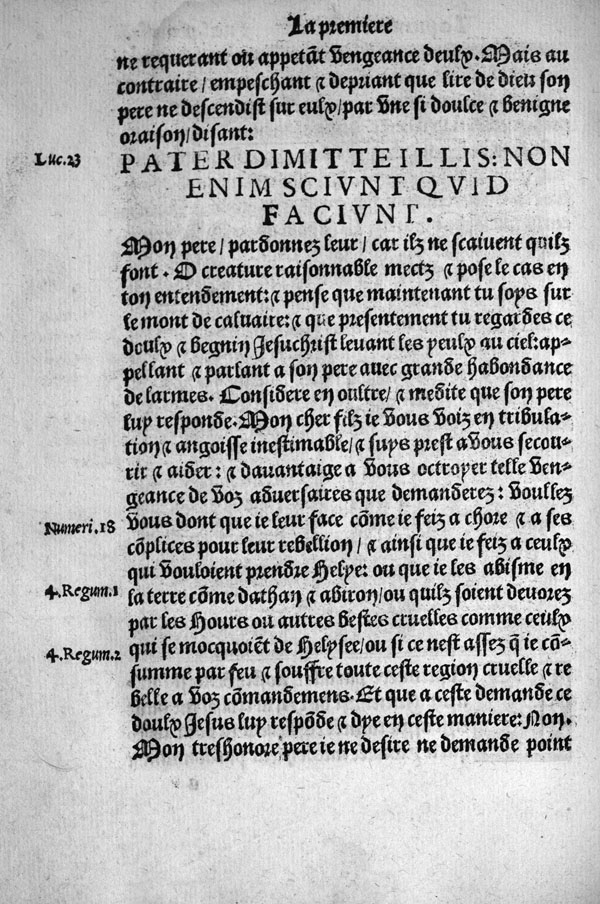 La premiere
ne requerant ou appetãt vengeance deulx. Mais au
contraire / empeschant & depriant que lire de dieu son
pere ne descendist sur eulx / par vne si doulce & benigne
oraison / disant:
Luc.23
PATER DIMITTE ILLIS: NON
ENIM SCIVNT QVID
FACIVNT.
Mon pere / pardonnez leur / car ilz ne scaiuent quilz
font. O creature raisonnable mectz & pose le cas en
ton entendement: & pense que maintenant tu soys sur
le mont de caluaire: & que presentement tu regardes ce
doulx & begnin Jesuchrist leuant les yeulx au ciel: ap-
pellant & parlant a son pere auec grande habondance
de larmes. Considere en oultre / & medite que son pere
luy responde. Mon cher filz ie vous voiz en tribula-
tion & angoisse inestimable / & suys prest a vous secou-
rir & aider: & dauantaige a vous octroyer telle ven-
geance de voz aduersaires que demanderez: voullez
Numeri.18
vous dont que ie leur face cõme ie feiz a chore & a ses
cõplices pour leur rebellion / & ainsi que ie feiz a ceulx
qui vouloient prendre Helye: ou que ie les abisme en
4.Regum.1
la terre cõme dathan & abiron / ou quilz soient deuorez
par les Hours ou autres bestes cruelles comme ceulx
4.Regum.2
qui se mocquoiẽt de Helysee / ou si ce nest assez q̃ ie cõ-
summe par feu & souffre toute ceste region cruelle & re
belle a voz cõmandemens. Et que a ceste demande ce
doulx Jesus luy respõde & dye en ceste maniere: Non.
Mon treshonore pere ie ne desire ne demande point